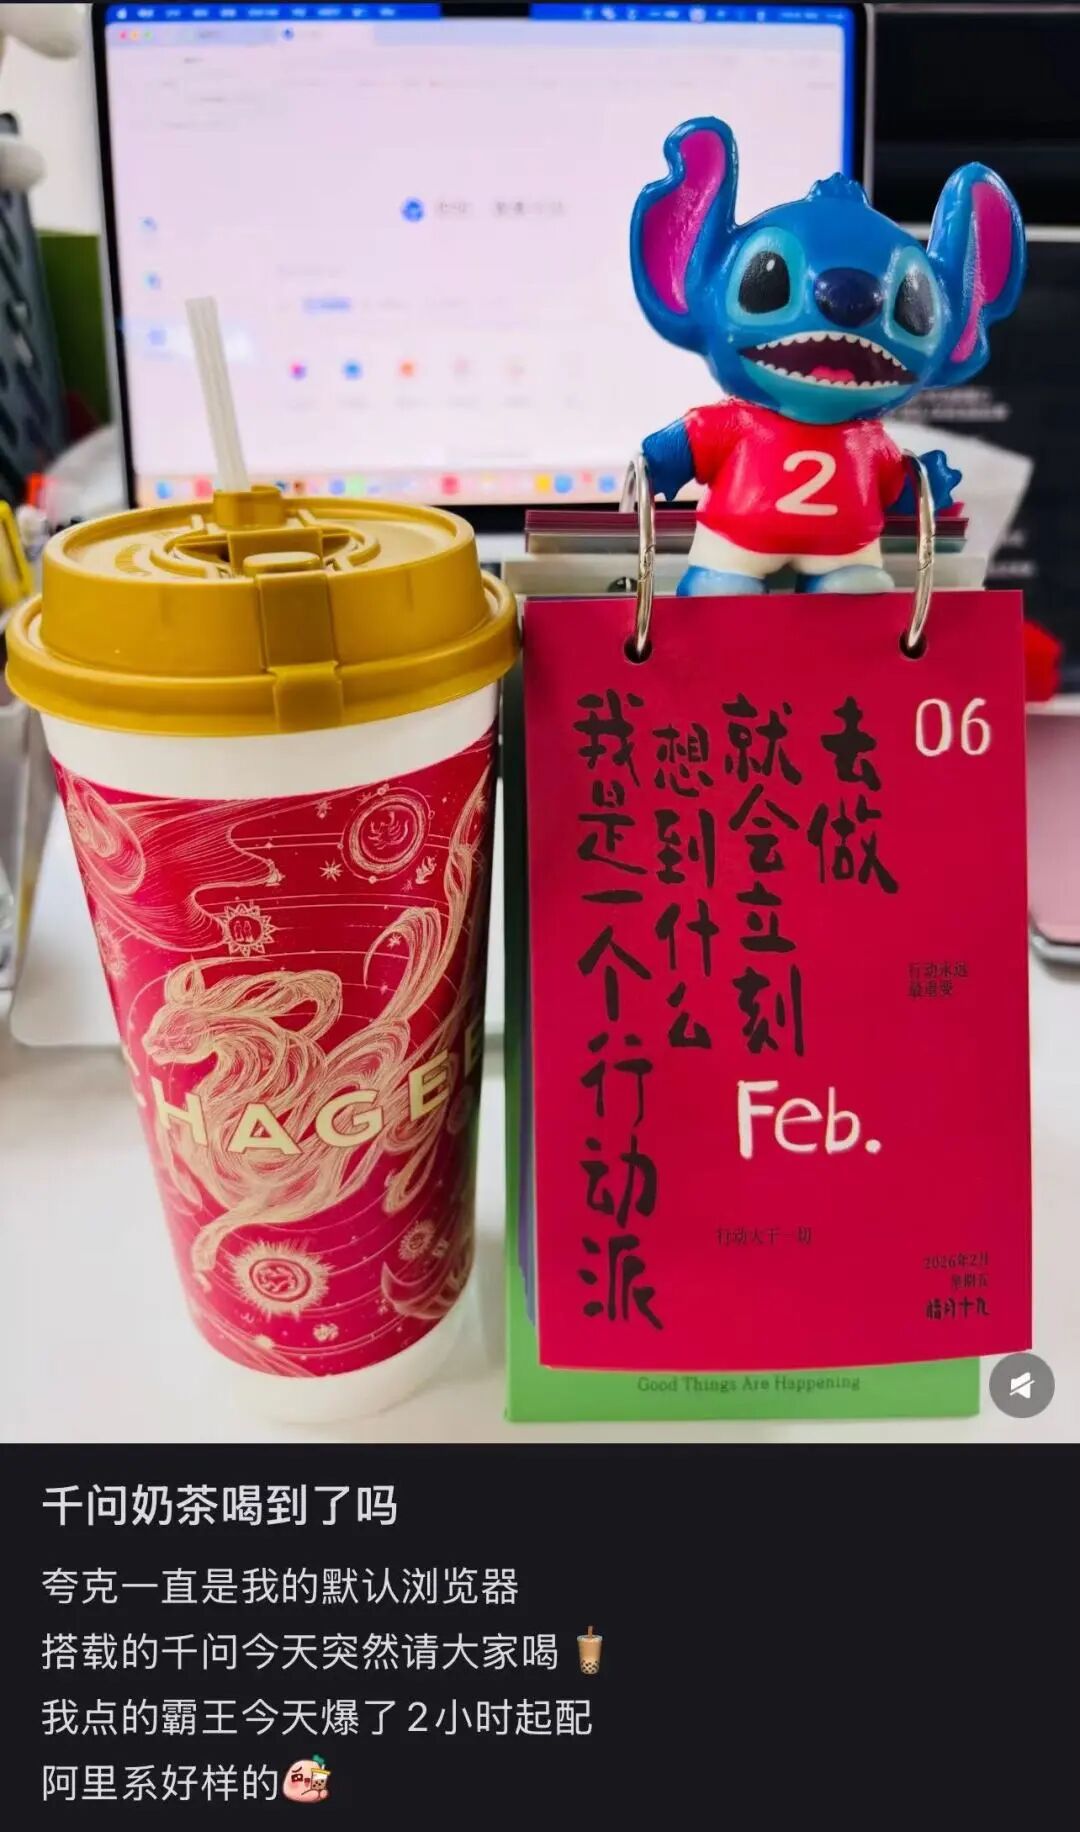 2
06
我是一个行动派
想到什么
就会立刻
去做
行动永远
最重要
Feb.
行动大于一切
2026年2月
星期五
腊月十九
Good Things Are Happening
CHAGEE
千问奶茶喝到了吗
夸克一直是我的默认浏览器
搭载的千问今天突然请大家喝🧋
我点的霸王今天爆了2小时起配
阿里系好样的